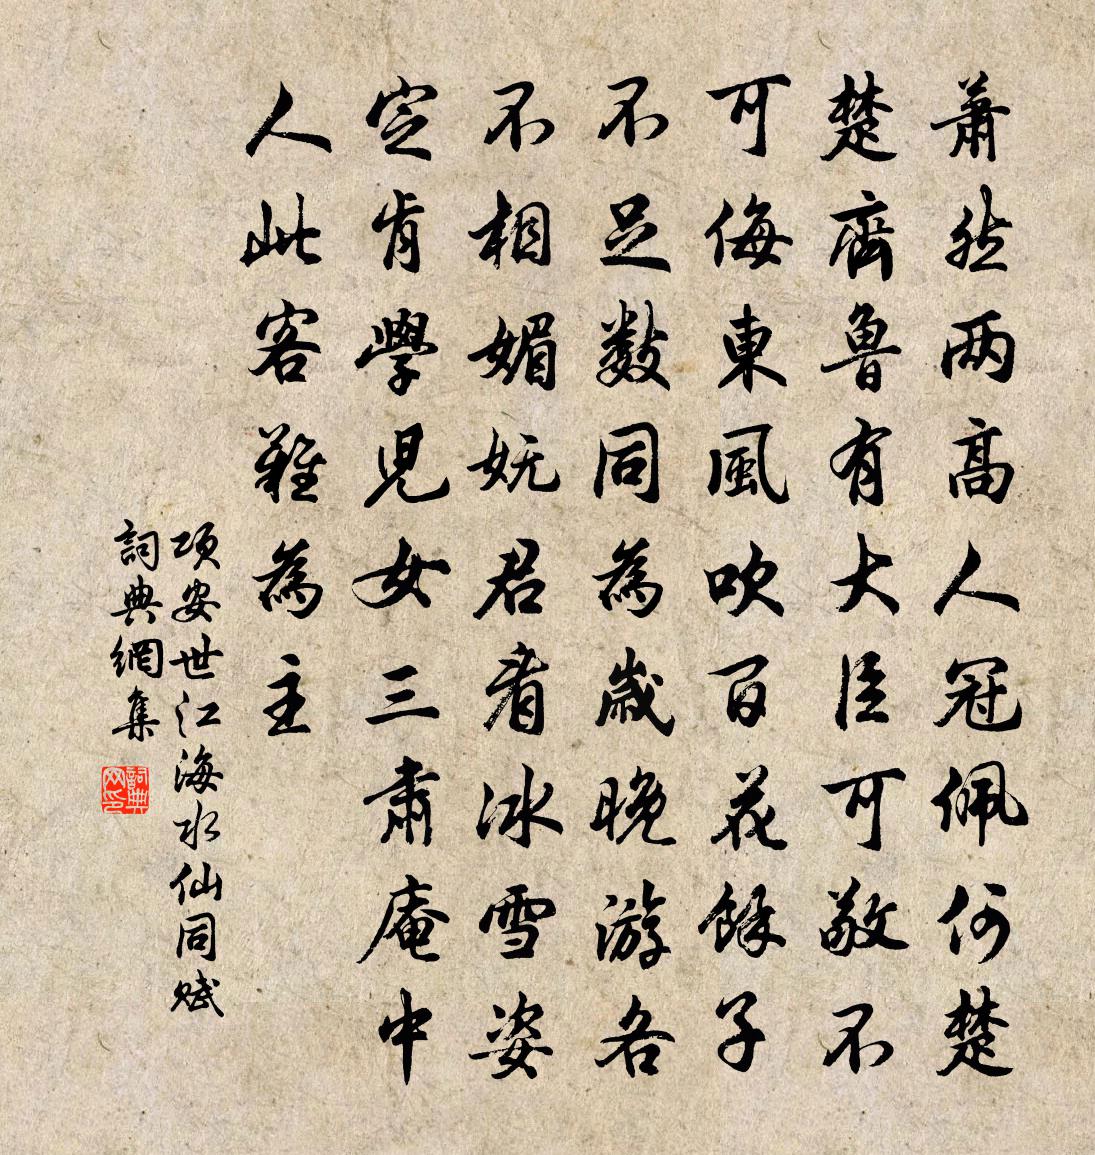 蕭然两高人冠佩何楚
楚齊魯有大臣可敬不
可侮東風吹百花餘子
不足數同為歲晚游各
不相媚妩君看冰雪姿
定肯學兒女三肅庵中
人此客難為主
項安世江海水仙同賦
詞典網集
詞典网印